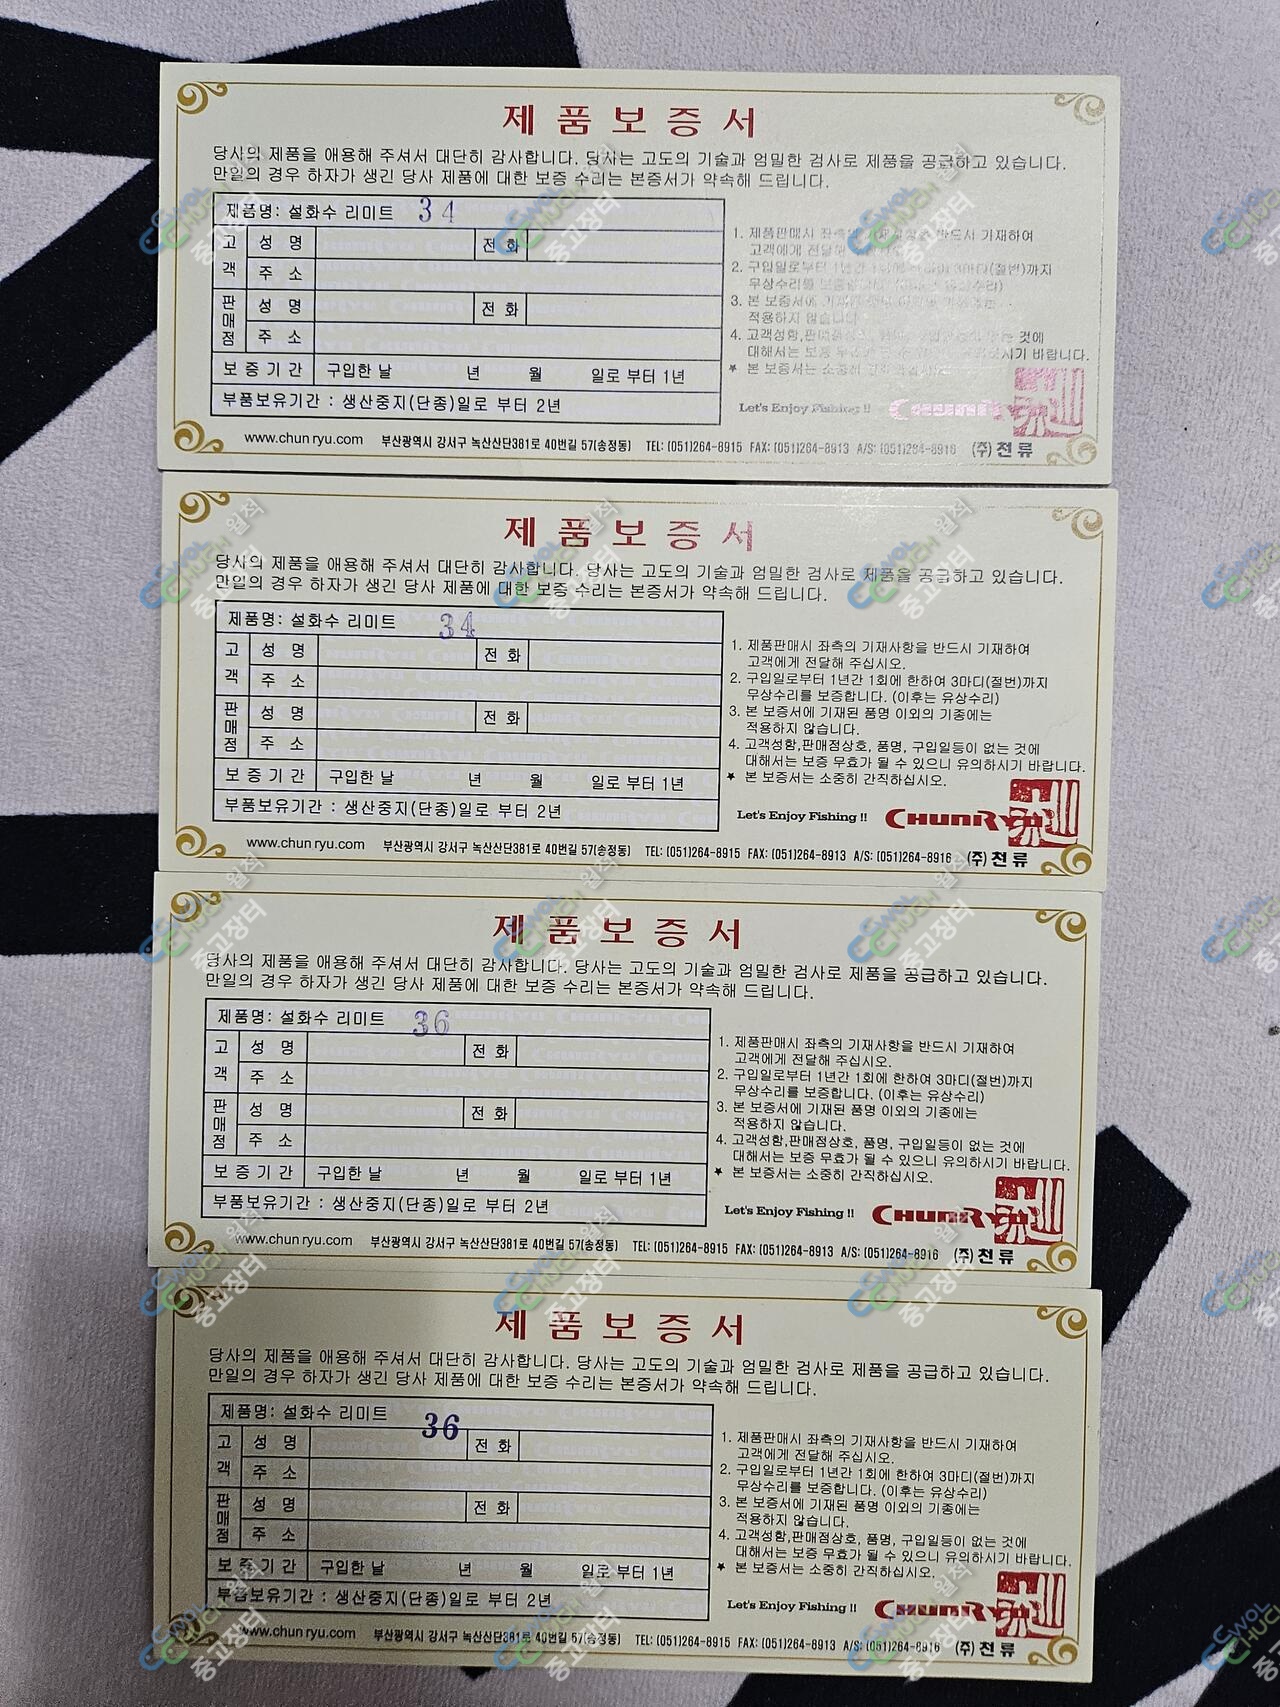 제품보증서
당사의 제품을 애용해 주셔서 대단히 감사합니다. 당사는 고도의 기술과 엄밀한 검사로 제품을 공급하고 있습니다.
만일의 경우 하자가 생긴 당사 제품에 대한 보증 수리는 본증서가 약속해 드립니다.
제품명: 설화수 리미트 34
고객 성명 전화
주소
판매점 성명 전화
주소
보증기간 구입한 날 년 월 일로 부터 1년
부품보유기간 : 생산중지(단종)일로 부터 2년
1. 제품판매시 좌측의 기재사항을 반드시 기재하여
고객에게 전달해
2. 구입일로부터 1년간 1회에 한하여 3마디(절번)까지
무상수리를 보증합니다. (이후는 유상수리)
3. 본 보증서에 기재된 품명 이외의 기종에는
적용하지 않습니다.
4. 고객성함,판매점상호, 품명, 구입일등이 없는 것에
대해서는 보증 무효가 될 수 있으니 유의하시기 바랍니다.
★ 본 보증서는 소중히 간직하십시오.
Let's Enjoy Fishing !! CHUNRYU
www.chunryu.com 부산광역시 강서구 녹산산단381로 40번길 57(송정동) TEL: (051)264-8915 FAX: (051)264-8913 A/S: (051)264-8916 (주)천류
제품보증서
당사의 제품을 애용해 주셔서 대단히 감사합니다. 당사는 고도의 기술과 엄밀한 검사로 제품을 공급하고 있습니다.
만일의 경우 하자가 생긴 당사 제품에 대한 보증 수리는 본증서가 약속해 드립니다.
제품명: 설화수 리미트 34
고객 성명 전화
주소
판매점 성명 전화
주소
보증기간 구입한 날 년 월 일로 부터 1년
부품보유기간 : 생산중지(단종)일로 부터 2년
1. 제품판매시 좌측의 기재사항을 반드시 기재하여
고객에게 전달해 주십시오.
2. 구입일로부터 1년간 1회에 한하여 3마디(절번)까지
무상수리를 보증합니다. (이후는 유상수리)
3. 본 보증서에 기재된 품명 이외의 기종에는
적용하지 않습니다.
4. 고객성함,판매점상호, 품명, 구입일등이 없는 것에
대해서는 보증 무효가 될 수 있으니 유의하시기 바랍니다.
★ 본 보증서는 소중히 간직하십시오.
Let's Enjoy Fishing !! CHUNRYU
www.chunryu.com 부산광역시 강서구 녹산산단381로 40번길 57(송정동) TEL: (051)264-8915 FAX: (051)264-8913 A/S: (051)264-8916 (주)천류
제품보증서
당사의 제품을 애용해 주셔서 대단히 감사합니다. 당사는 고도의 기술과 엄밀한 검사로 제품을 공급하고 있습니다.
만일의 경우 하자가 생긴 당사 제품에 대한 보증 수리는 본증서가 약속해 드립니다.
제품명: 설화수 리미트 36
고객 성명 전화
주소
판매점 성명 전화
주소
보증기간 구입한 날 년 월 일로 부터 1년
부품보유기간 : 생산중지(단종)일로 부터 2년
1. 제품판매시 좌측의 기재사항을 반드시 기재하여
고객에게 전달해 주십시오.
2. 구입일로부터 1년간 1회에 한하여 3마디(절번)까지
무상수리를 보증합니다. (이후는 유상수리)
3. 본 보증서에 기재된 품명 이외의 기종에는
적용하지 않습니다.
4. 고객성함,판매점상호, 품명, 구입일등이 없는 것에
대해서는 보증 무효가 될 수 있으니 유의하시기 바랍니다.
★ 본 보증서는 소중히 간직하십시오.
Let's Enjoy Fishing !! CHUNRYU
www.chunryu.com 부산광역시 강서구 녹산산단381로 40번길 57(송정동) TEL: (051)264-8915 FAX: (051)264-8913 A/S: (051)264-8916 (주)천류
제품보증서
당사의 제품을 애용해 주셔서 대단히 감사합니다. 당사는 고도의 기술과 엄밀한 검사로 제품을 공급하고 있습니다.
만일의 경우 하자가 생긴 당사 제품에 대한 보증 수리는 본증서가 약속해 드립니다.
제품명: 설화수 리미트 36
고객 성명 전화
주소
판매점 성명 전화
주소
보증기간 구입한 날 년 월 일로 부터 1년
부품보유기간 : 생산중지(단종)일로 부터 2년
1. 제품판매시 좌측의 기재사항을 반드시 기재하여
고객에게 전달해 주십시오.
2. 구입일로부터 1년간 1회에 한하여 3마디(절번)까지
무상수리를 보증합니다. (이후는 유상수리)
3. 본 보증서에 기재된 품명 이외의 기종에는
적용하지 않습니다.
4. 고객성함,판매점상호, 품명, 구입일등이 없는 것에
대해서는 보증 무효가 될 수 있으니 유의하시기 바랍니다.
★ 본 보증서는 소중히 간직하십시오.
Let's Enjoy Fishing !! CHUNRYU
www.chunryu.com 부산광역시 강서구 녹산산단381로 40번길 57(송정동) TEL: (051)264-8915 FAX: (051)264-8913 A/S: (051)264-8916 (주)천류